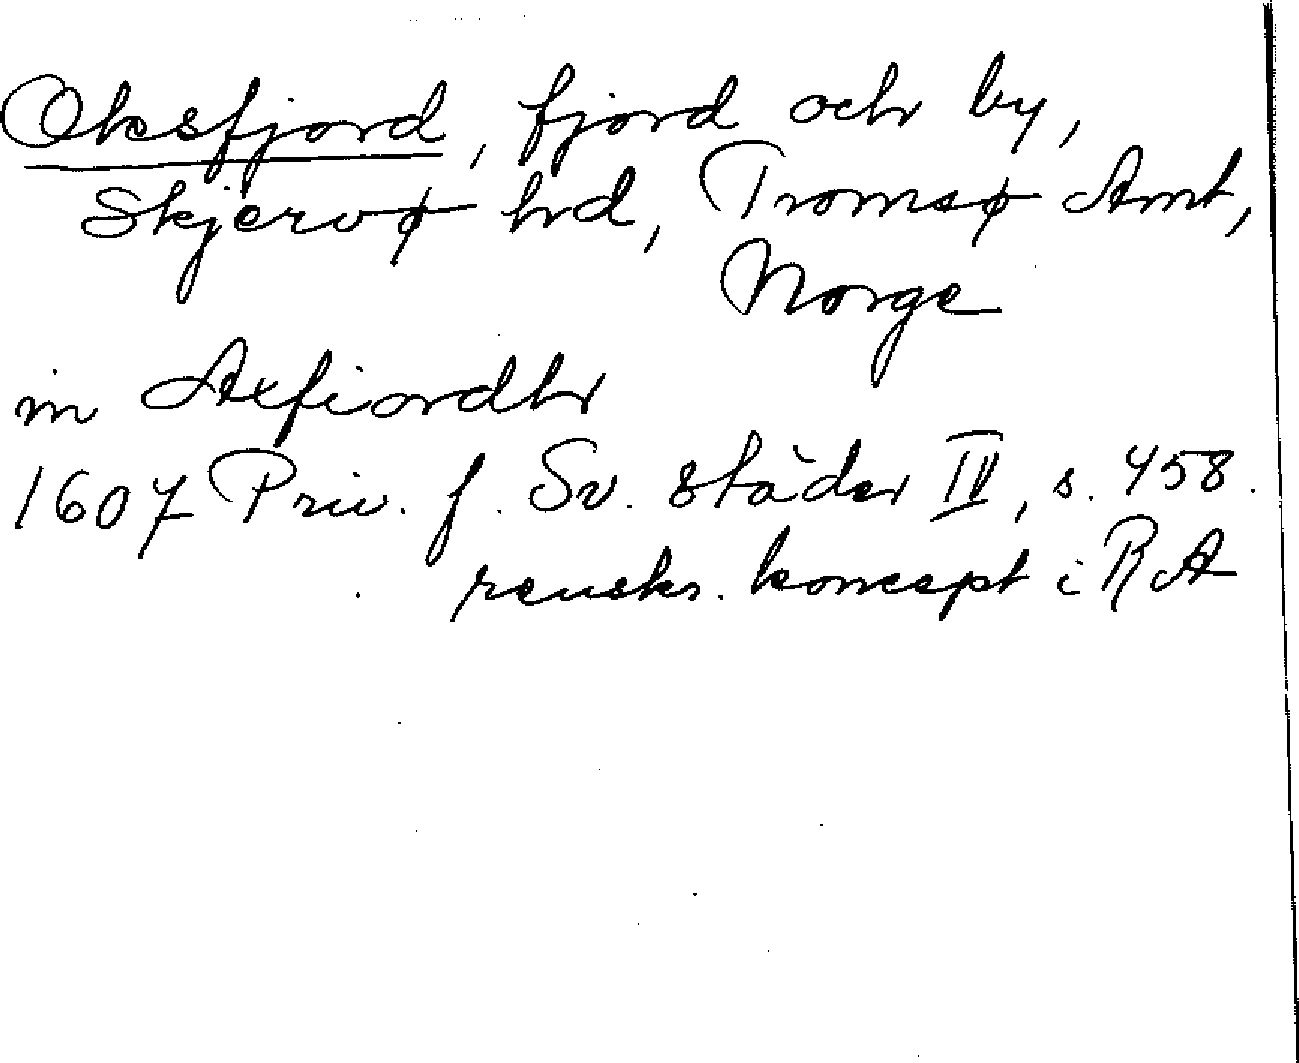 Oksfjord, fjord och by,
Skjervø hd, Tromsø Amt,
Norge
in Axfiordhr
1607 Priv. f. Sv. städer IV, s. 458.
renskr. koncept i RA